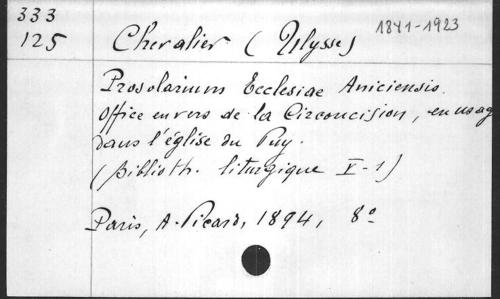 333
125
Chevalier (Ulysse) 1841-1923
Prosolarium Ecclesiae Aniciensis.
Office en vers de la Circoncision, en usag
dans l'église du Puy.
(Biblioth. liturgique V-1)
Paris, A. Picard, 1894, 8º